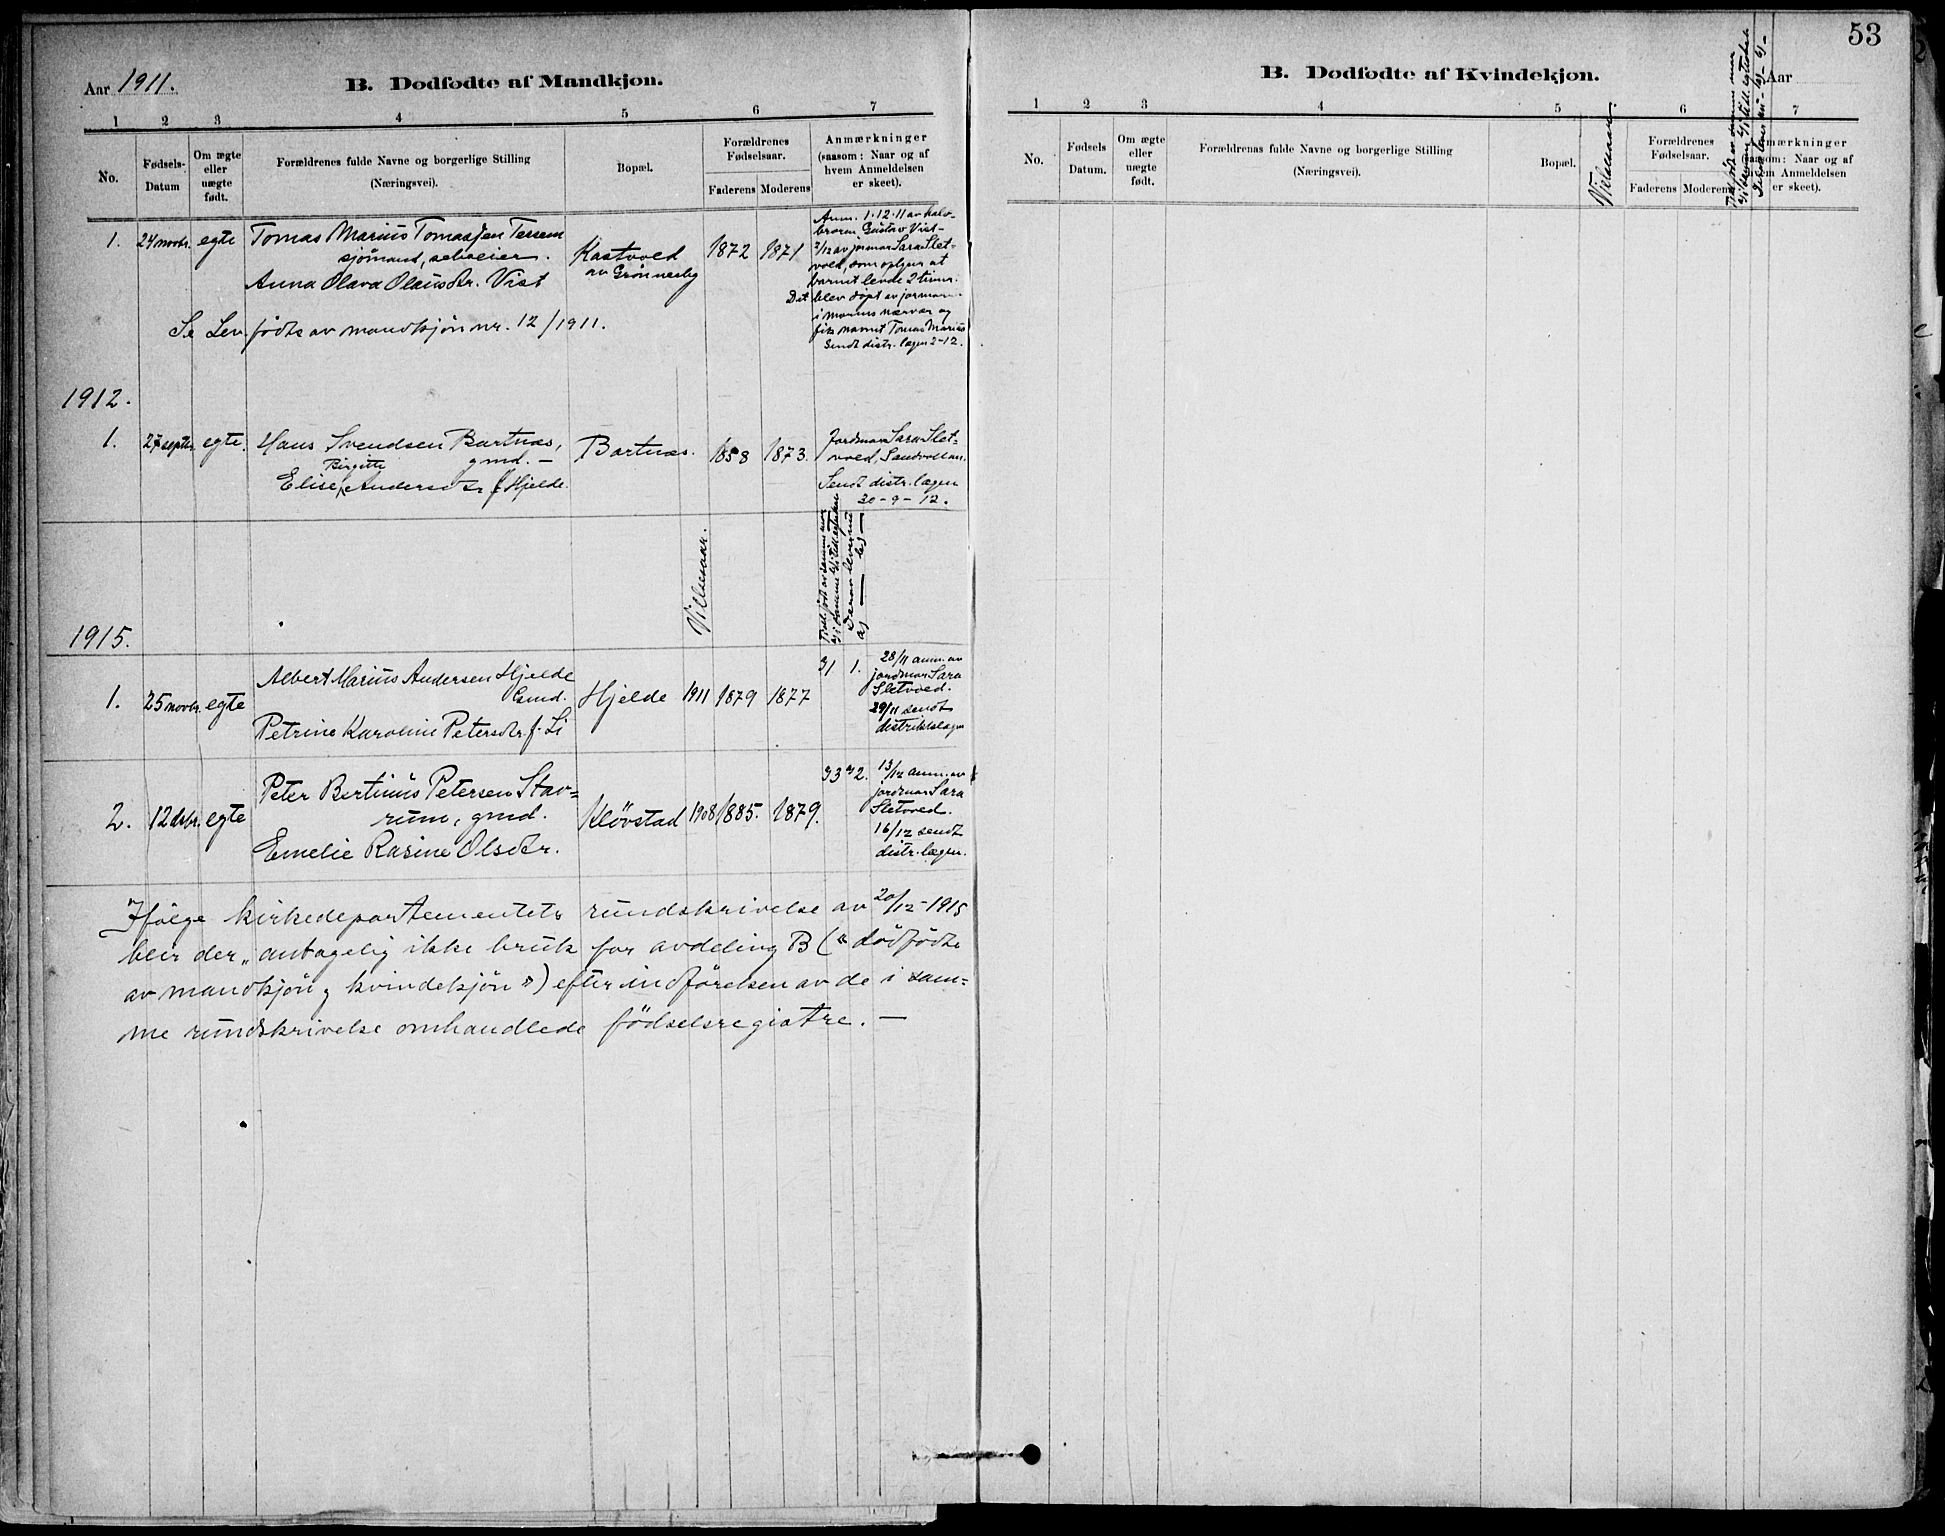 Aar 1911.
B. Dødfødte af Mandkjøn.
1 2 3 4 5 6 7
No.
Fødsels-
Datum
Om ægte
eller
uægte
født.
Forældrenes fulde Navne og borgerlige Stilling
(Næringsvei).
Bopæl.
Forældrenes
Fødselsaar.
Faderens Moderens
Anmærkninger
(saasom: Naar og af
hvem Anmeldelsen
er skeet).
1. 24 novbr. egte
Tomas Marius Tomassen Tessem
sjømand, selveier.
Anna Olava Olausdtr. Vist
Kastvold
av Grønnesby
1872 1871
Anm. 1.12.11 av halv-
broren Gustav Vist -
2/12 av jormor Sara Slet-
vold, som oplyser at
barnet levde 2 timer.
Det blev døpt av jormor
i morens nærvær og
fik navnet Tomas Marius
Sendt distr.lægen 2-12.
Se Lev. fødte av mandkjøn nr. 12/1911.
1912.
1. 27 septbr. egte.
Hans Svendsen Bartnæs,
gmd. -
Birgitte
Elise Andersdtr. f. Hjelde.
Bartnæs.
1858 1873.
Jordmor Sara Slet-
vold, Sandvollan.
Sendt distr.lægen
30-9-12.
Vielsesaar.
1915.
1. 25 novbr. egte
Albert Marius Andersen Hjelde
Gmd.
Petrine Karoline Petersdtr. f. Li
Hjelde 1911 1879 1877
28/11 anm. av
jordmor Sara
Sletvold.
29/11 sendt
distriktslægen
2. 12 dcbr. egte
Peter Bertinus Petersen Stav-
rum, gmd.
Emelie Rasine Olsdtr.
Kløvstad 1908 1885. 1879.
13/12 anm. av
jordmor Sara
Sletvold.
16/12 sendt
distr.lægen.
Ifølge kirkedepartementets rundskrivelse av 20/12-1915
blir der „antagelig ikke bruk for avdeling B („dødfødte
av mandkjøn og kvindekjøn") efter indførelsen av de i sam-
me rundskrivelse omhandlede fødselsregistre. -
53
B. Dødfødte af Kvindekjøn.
Aar
1 2 3 4 5 6 7
No.
Fødsels
Datum.
Om ægte
eller
uægte
født.
Forældrenas fulde Navne og borgerlige Stilling
(Næringsvei).
Bopæl.
Forældrenes
Fødselsaar.
Faderens Moderens
Anmærkninger
(saasom: Naar og af
hvem Anmeldelsen
er skeet).